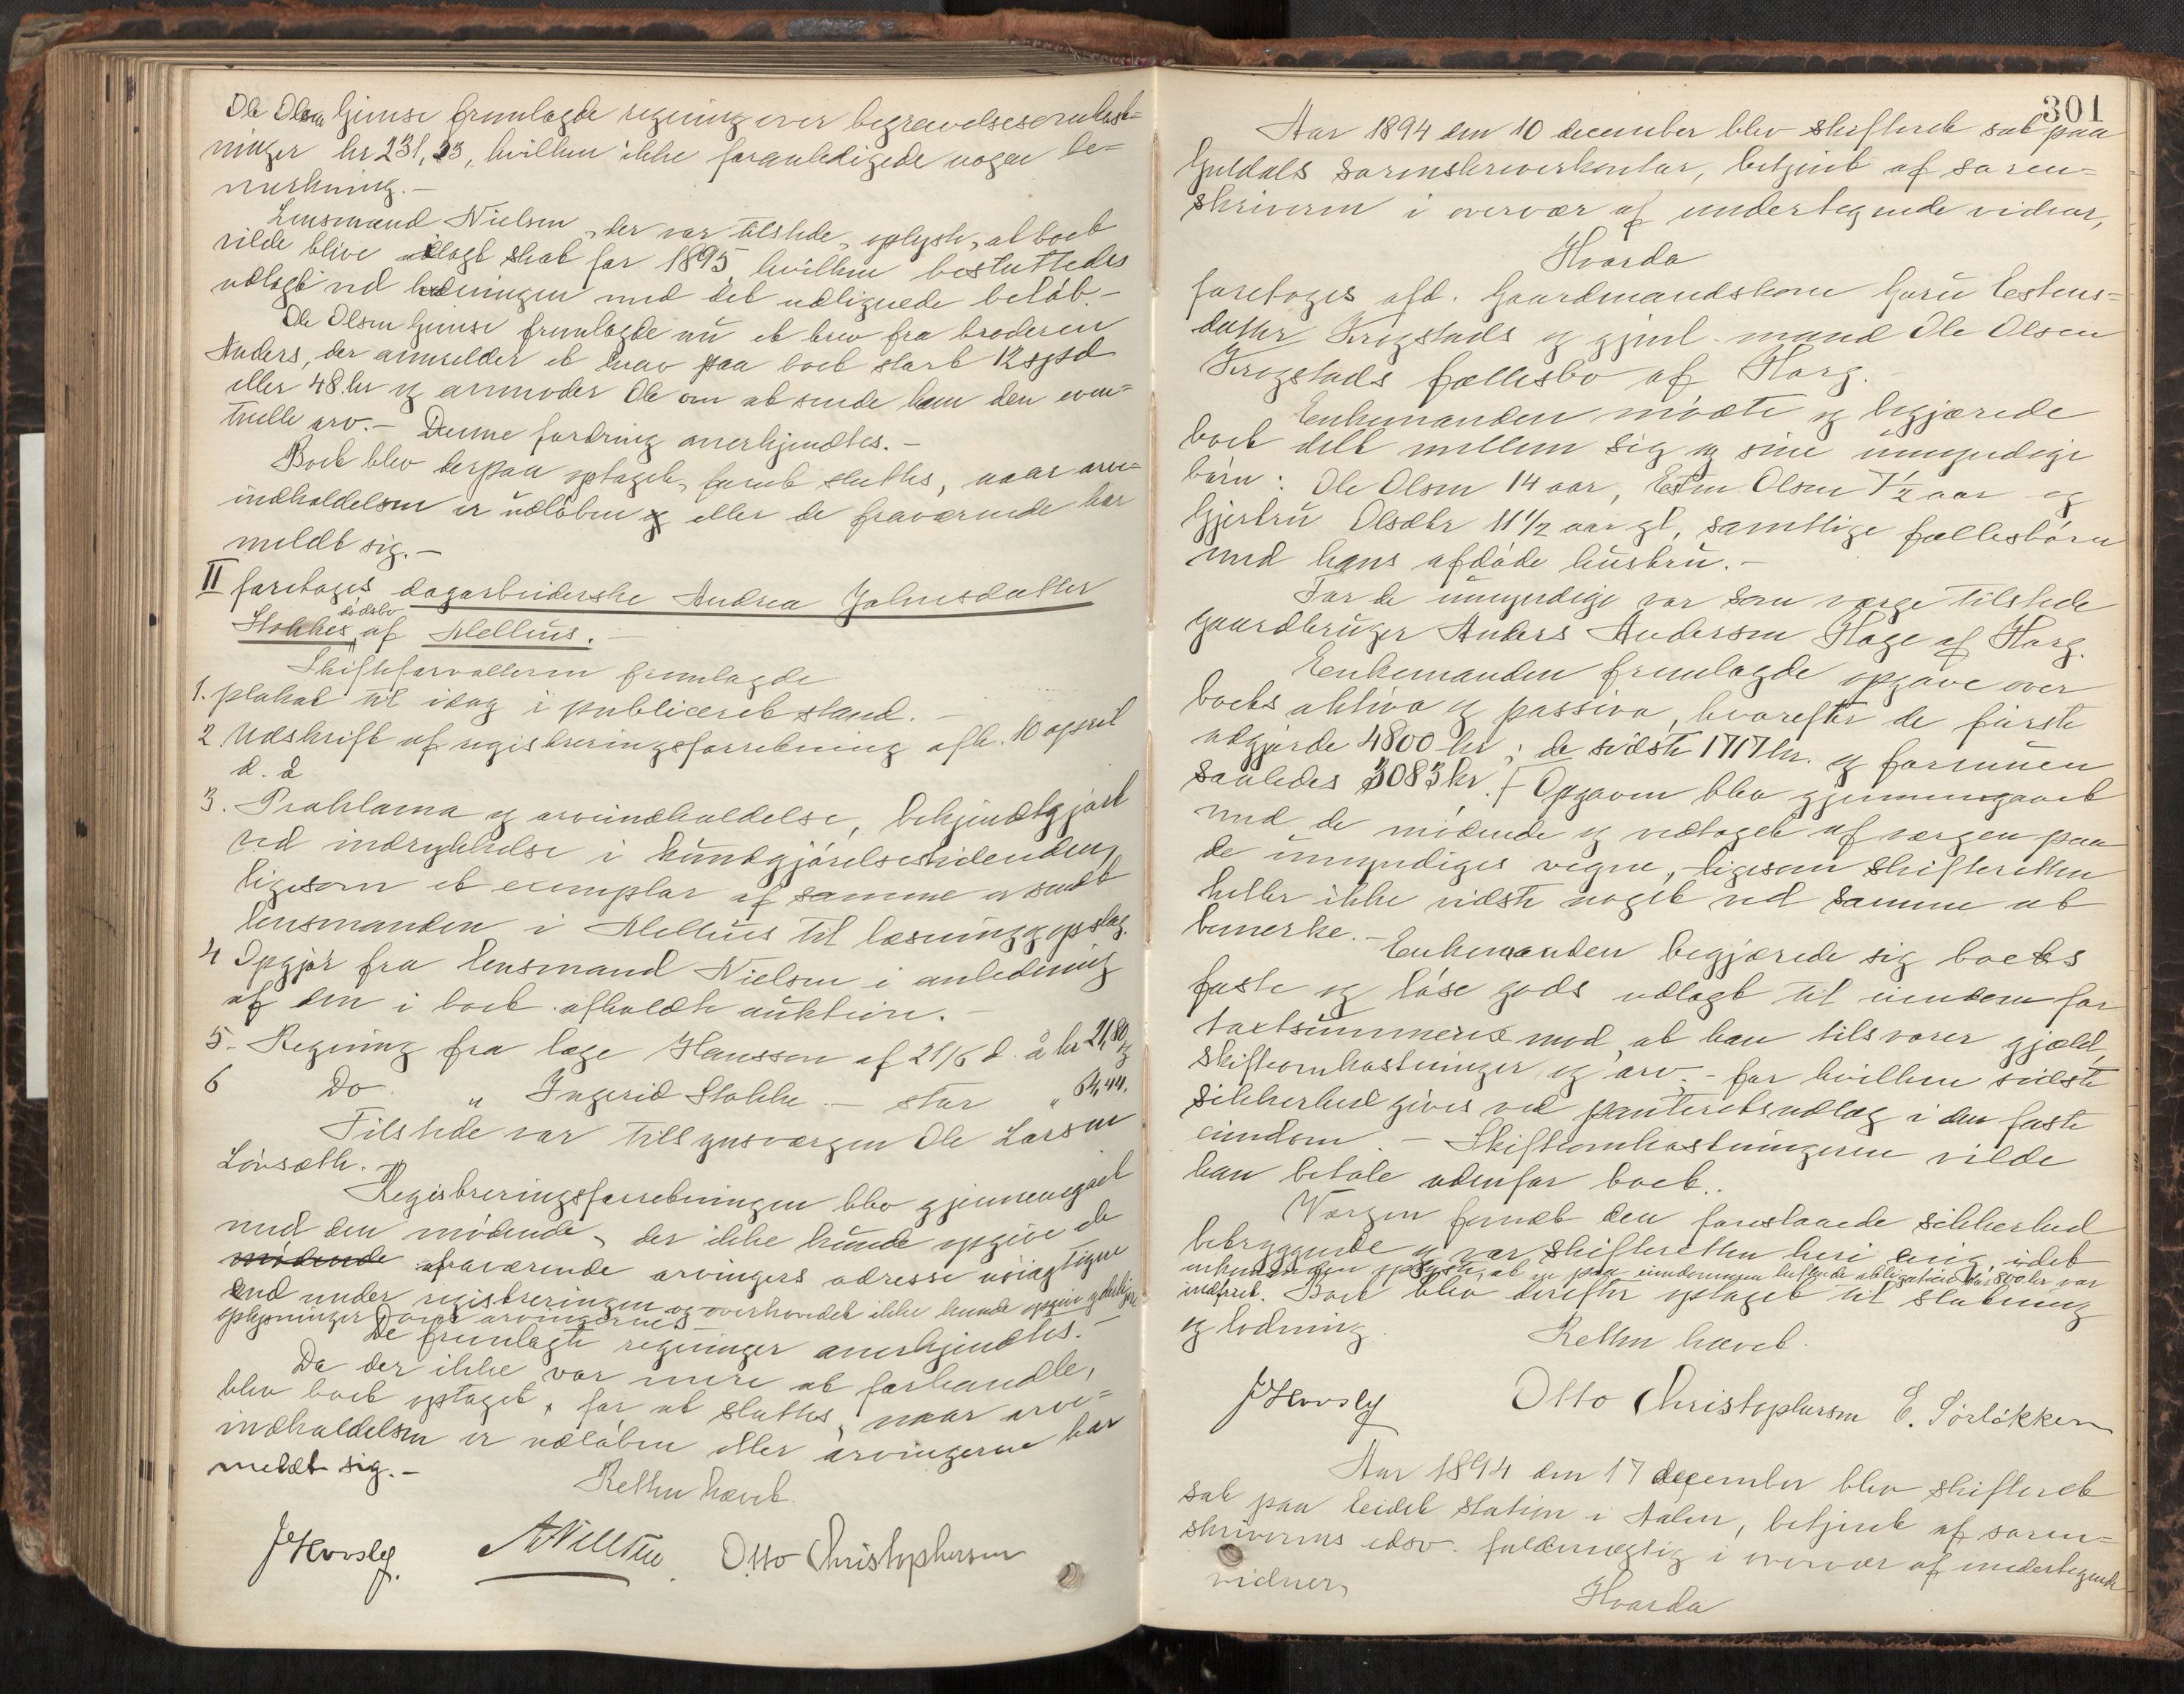 Ole Olsen Gimse fremlagde regning over begravelsesomkost=
ninger kr 231,23, hvilken ikke foranledigede nogen be=
merkning.-
Lensmand Nielsen, der var tilstede, oplyste, at boet
vilde blive ilagt skat for 1895, hvilken besluttedes
udlagt ved lodningen med det udlignede beløb.-
Ole Olsen Gimse fremlagde nu et brev fra broderen
Anders, der anmelder et krav paa boet stort 12 spd
eller 48 kr og anmoder Ole om at sende ham den even=
tuelle arv.- Denne fordring anerkjendtes.-
Boet blev derpaa optaget, forat sluttes, naar arve=
indkaldelsen er udløben eller de fraværende har
meldt sig.-
II foretoges dagarbeiderske Andrea Johnsdatter
Stokkes dødsbo af Melhus.-
Skifteforvalteren fremlagde
1. plakat til idag i publiceret stand.-
2 Udskrift af registreringsforretning afh. 10 april
d. å
3. Proklama og arveindkaldelse, bekjendtgjort
ved indrykkelse i kundgjørelsestidenden,
ligesom et exemplar af samme er sendt
lensmanden i Melhus til læsning og opslag.
4 Opgjør fra lensmand Nielsen i anledning
af den i boet afholdte auktion.-
5. Regning fra læge Hansson af 21/6 d. å kr 21,80 og
6 Do " Ingerid Stokke - stor " 64,44.
Tilstede var tilsynsværgen Ole Larsen
Løvseth.-
Registreringsforretningen blev gjennemgaaet
med den mødende, der ikke kunde opgive de
mødende fraværende arvingers adresse nøiagtigere
end under registreringen og overhovedet ikke kunde opgive
oplysninger om arvingerne
De fremlagte regninger anerkjendtes.-
Da der ikke var mere at forhandle,
blev boet optaget, for at sluttes, naar arve=
indkaldelsen er udløben eller arvingerne har
meldt sig.-
Retten hævet.
J Hovsly. A Nielsen. Otto Christophersen
301
Aar 1894 den 10 december blev skifteret sat paa
Guldals sorenskriverkontor, betjent af soren=
skriveren i overvær af undertegnede vidner,
Hvorda
foretoges afd. Gaardmandskone Guru Estens=
datter Krogstads og gjenl. mand Ole Olsen
Krogstads fællesbo af Horg.-
Enkemanden mødte og begjærede
boet delt mellem sig og sine umyndige
børn: Ole Olsen 14 aar, Esten Olsen 7½ aar og
Gjertru Olsdtr 11½ aar gl, samtlige fællesbørn
med hans afdøde hustru.-
For de umyndige var som verge tilstede
gaardbruger Anders Andersen Hage af Horg.
Enkemanden fremlagde opgave over
boets aktiva og passiva, hvorefter de første
udgjorde 4800 kr, de sidste 1717 kr. og formuen
saaledes 3083 kr. Opgaven blev gjennemgaaet
med de mødende og vedtaget af vergen paa
de umyndiges vegne, ligesom skifteretten
heller ikke vidste noget ved samme at
bemerke.- Enkemanden begjærede sig boets
faste og løse gods udlagt til eiendom for
taxtsummerne mod, at han tilsvarer gjæld,
skifteomkostninger og arv,- for hvilken sidste
sikkerhed gives ved panteretsudlæg i den faste
eiendom - Skifteomkostningerne vilde
han betale udenfor boet.
Vergen fandt den foreslaaede sikkerhed
betryggende og var skifteretten heri enig, idet
enkemanden oplyste, at en paa eiendommen heftende obligation stor 800 kr var
indfriet. Boet blev derefter optaget til slutning
og lodning.
Retten hævet.
J Hovsly Otto Christophersen E. Sørløkken
Aar 1894 den 17 december blev skifteret
sat paa Eidet station i Aalen, betjent af soren=
skriverens edsv. fuldmægtig i overvær af undertegnede
vidner,
Hvorda